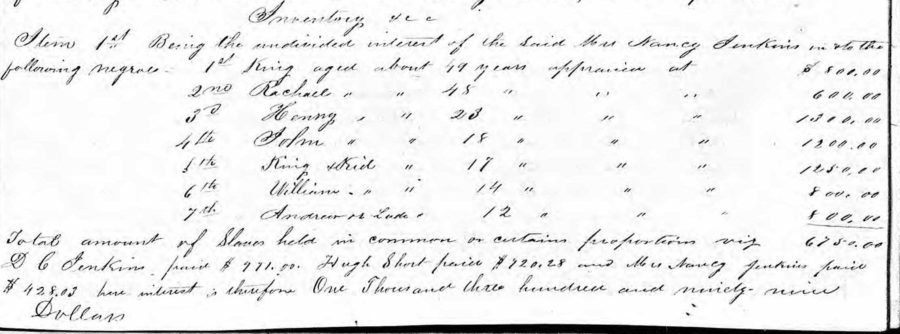 Inventory &c c
Item 1st Being the undivided interest of the Said Mrs Nancy Jenkins in &to the
following negroes - 1st King aged about 49 years appraised at $ 800.00
2nd Rachael " " 48 " " " 600.00
3d Henny " " 23 " " " 1300.00
4th John " " 18 " " " 1200.00
5th King " 17 " " " 1250.00
6th William " " 14 " " " 800.00
7th Andrew or " 12 " " " 800.00
Total amount of Slaves held in common or certains proportions viz 6750.00
D C Jenkins paid $ 971.00. Hugh Short paid $720.28 and Mrs Nancy Jenkins paid
$ 428.03 her interest is therefore One Thousand three hundred and ninety-nine
Dollars